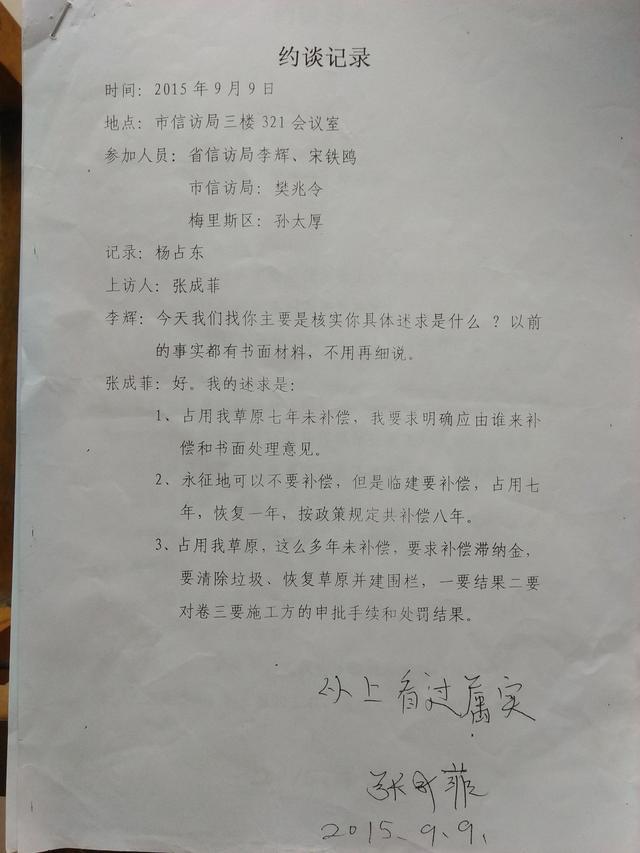 约谈记录
时间：2015年9月9日
地点：市信访局三楼321会议室
参加人员：省信访局李辉、宋铁鸥
市信访局：樊兆令
梅里斯区：孙太厚
记录：杨占东
上访人：张成菲
李辉：今天我们找你主要是核实你具体述求是什么 ？以前
的事实都有书面材料，不用再细说。
张成菲：好。我的述求是：
1、占用我草原七年未补偿，我要求明确应由谁来补
偿和书面处理意见。
2、永征地可以不要补偿，但是临建要补偿，占用七
年，恢复一年，按政策规定共补偿八年。
3、占用我草原，这么多年未补偿，要求补偿滞纳金，
要清除垃圾、恢复草原并建围栏，一要结果二要
对卷三要施工方的申批手续和处罚结果。
以上看过属实
张成菲
2015.9.9.